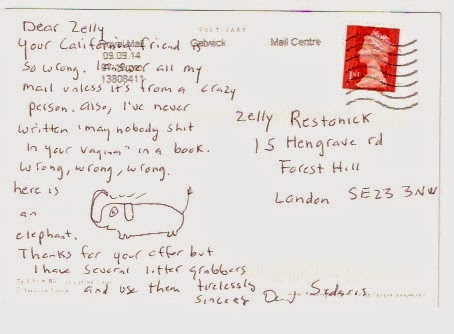 POST CARD
Dear Zelly
Your California friend is
so wrong. I answer all my
mail unless it's from a crazy
person. Also, I've never
written "may nobody shit
in your vagina" in a book.
Wrong, wrong, wrong.
here is
an
elephant.
Thanks for your offer but
I have several litter grabbers
and use them tirelessly
sincerely David Sedaris
Royal Mail
Gatwick
Mail Centre
09.09.14
13808411
1st
Zelly Restorick
15 Hengrave rd
Forest Hill
London SE23 3NW